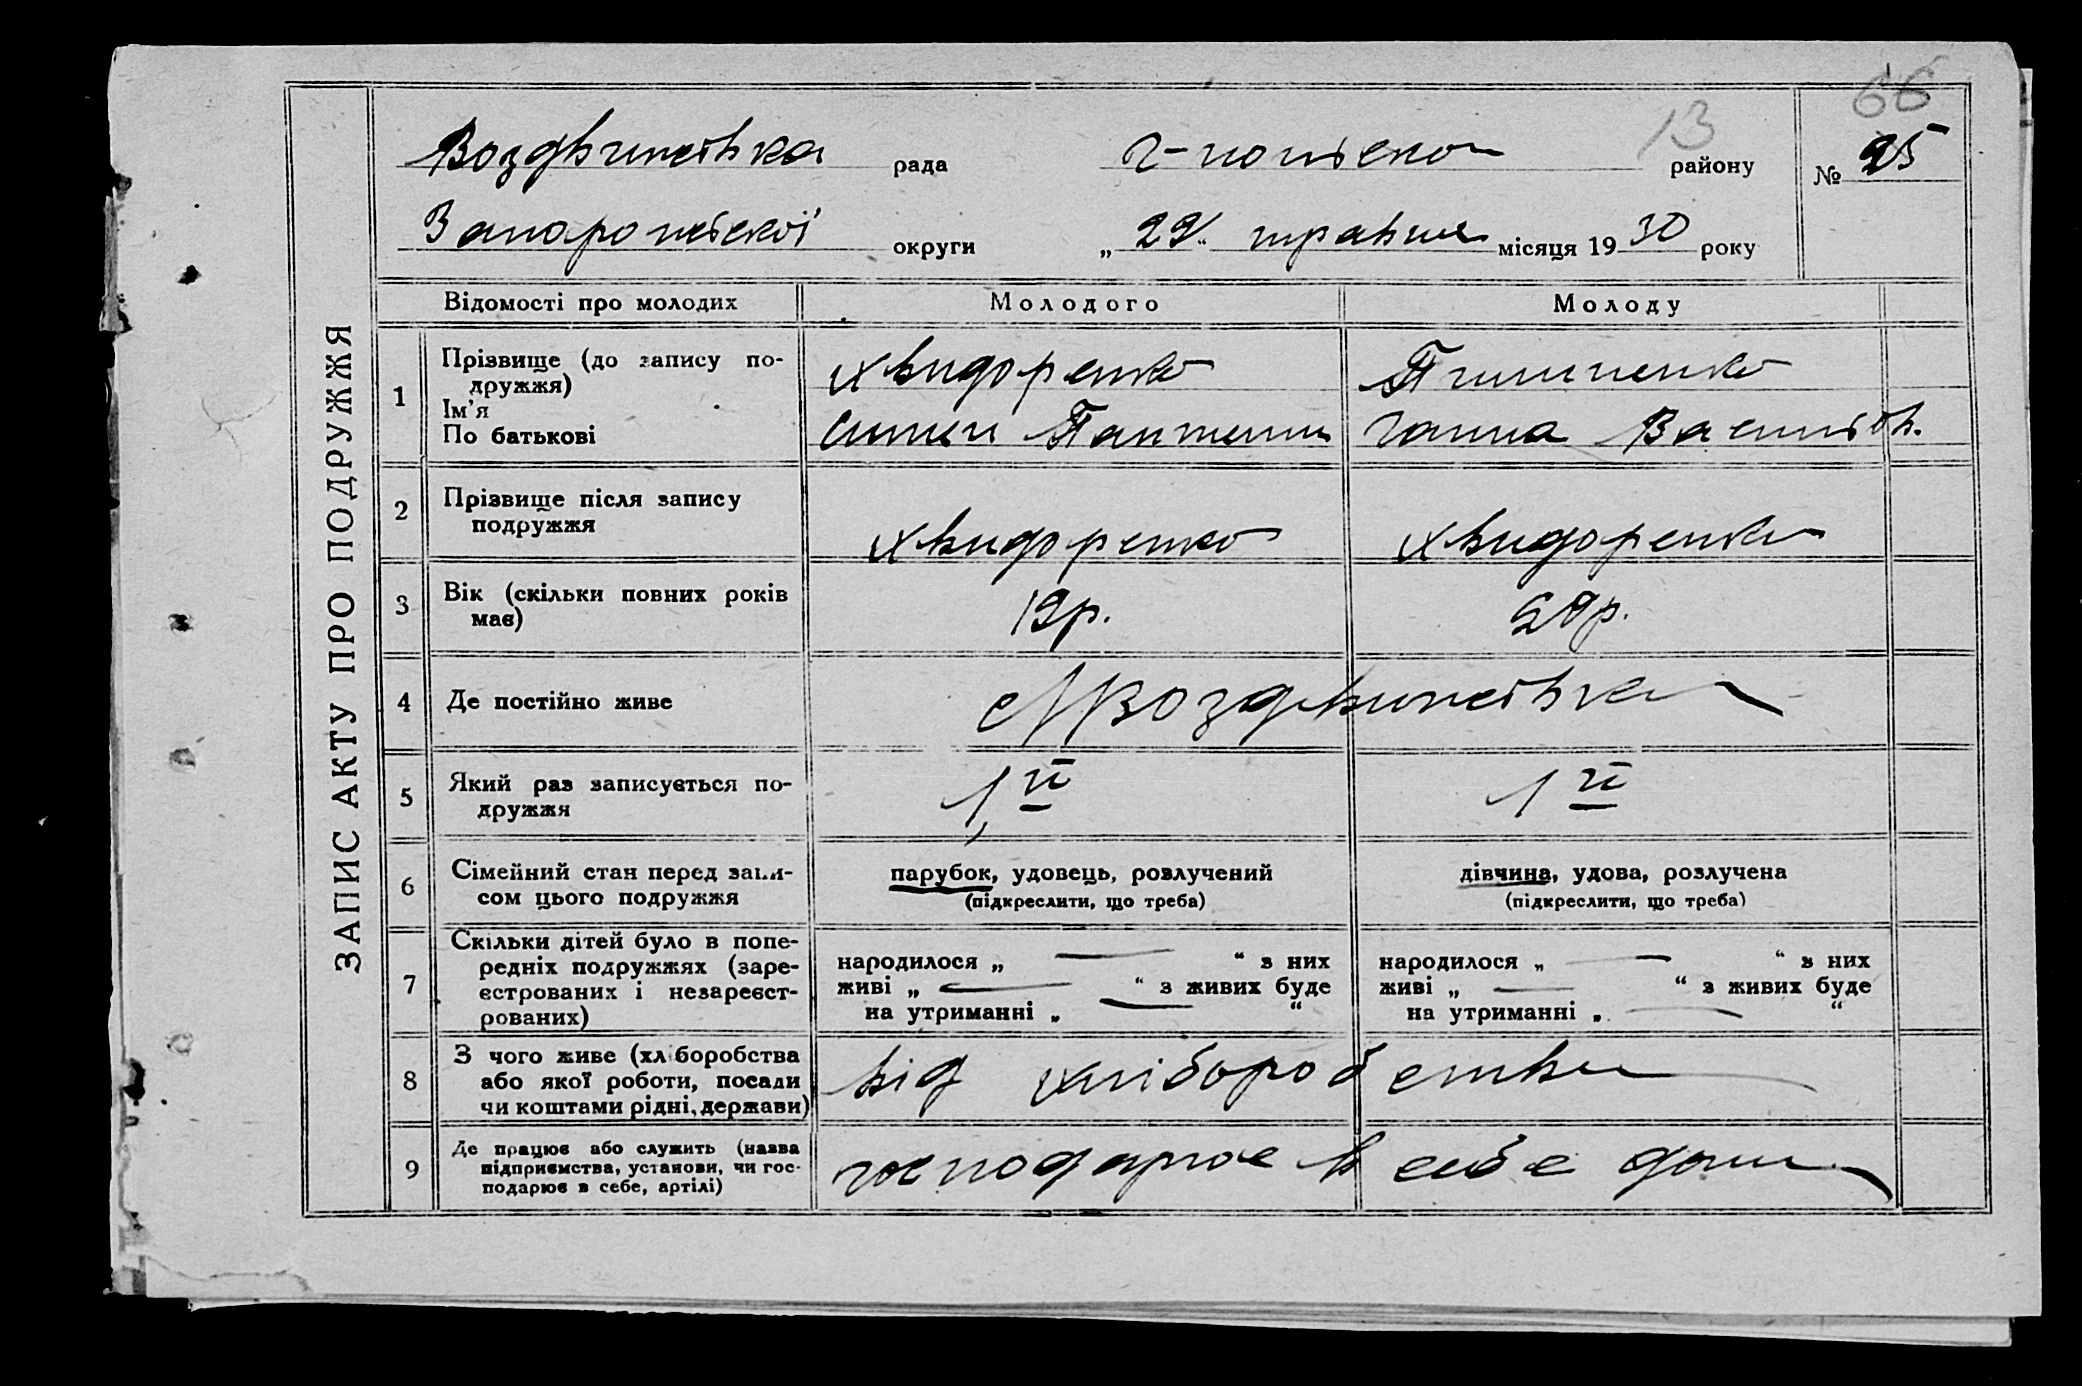 66
13
Воздвижівка рада Г-Пільско району № 25
Запорожської округи „22“ травня місяця 1930 року
ЗАПИС АКТУ ПРО ПОДРУЖЖЯ
Відомості про молодих Молодого Молоду
1 Прізвище (до запису по-
дружжя)
Ім'я
По батькові
Хвидоренко
Пилипенко
Ганна Васильов.
2 Прізвище після запису
подружжя
Хвидоренко Хвидоренко
3 Вік (скільки повних років
має)
19р. 20р.
4 Де постійно живе
с Воздвижівка
5 Який раз записується по-
дружжя
1й 1й
6 Сімейний стан перед запи-
сом цього подружжя
парубок, удовець, розлучений
(підкреслити, що треба)
дівчина, удова, розлучена
(підкреслити, що треба)
7 Скільки дітей було в попе-
редніх подружжях (заре-
єстрованих і незареєст-
рованих)
народилося „ — “ з них
живі „ — “ з живих буде
на утриманні „ — “
народилося „ — “ з них
живі „ — “ з живих буде
на утриманні „ — “
8 З чого живе (хліборобства
або якої роботи, посади
чи коштами рідні, держави)
від хліборобства
9 Де працює або служить (назва
підприємства, установи, чи гос-
подарює в себе, артілі)
господарює в себе дома